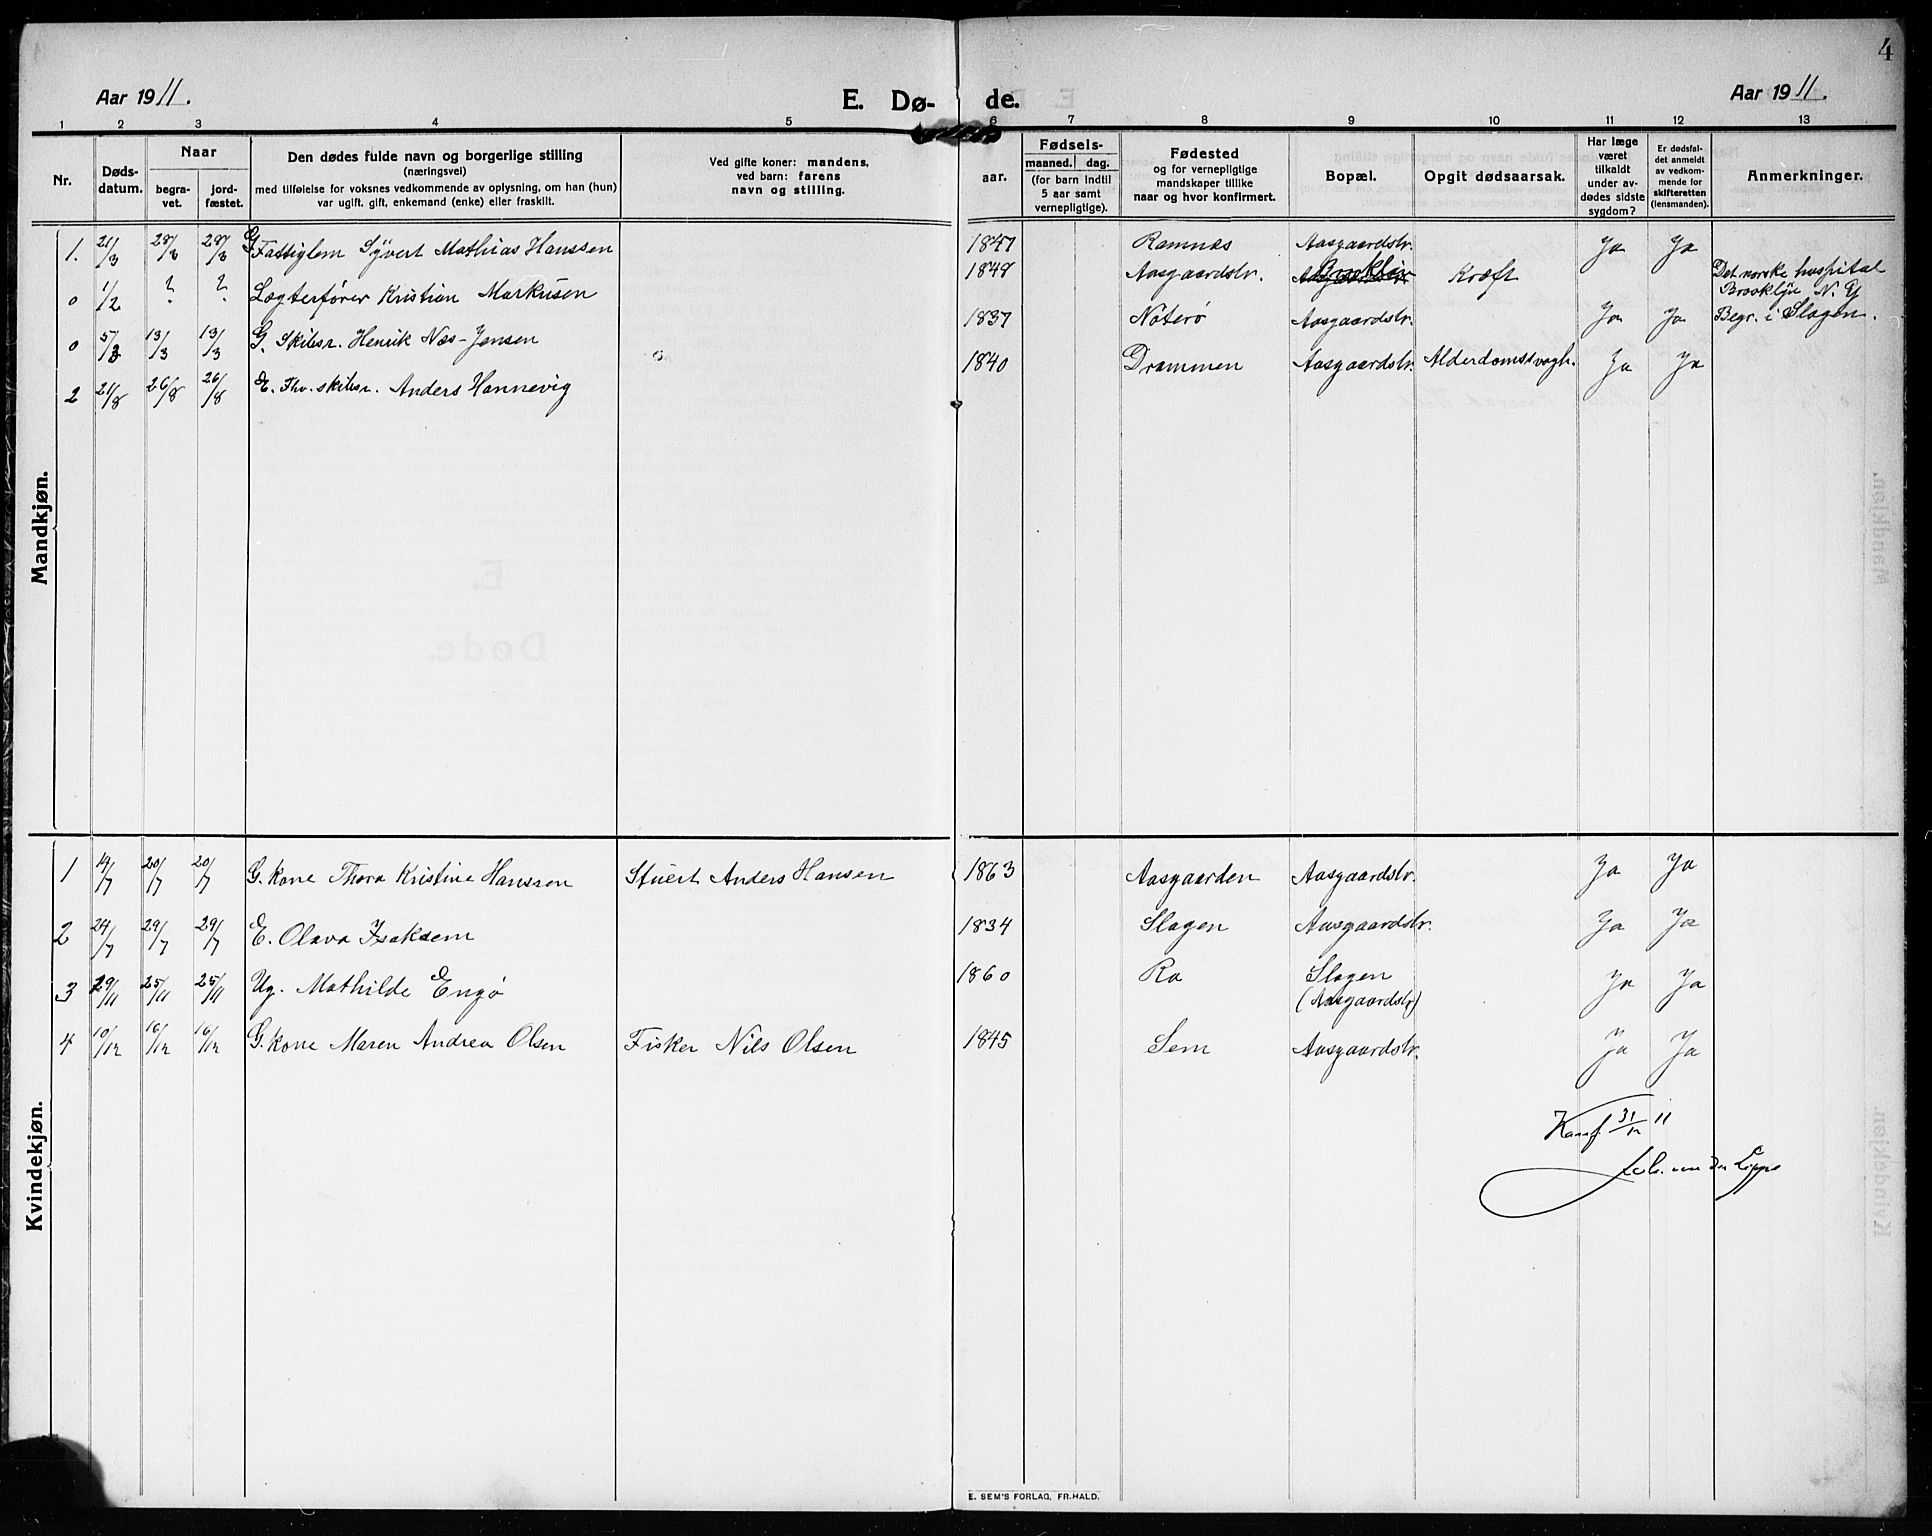 4
Aar 1911.
E. Dø- de.
Aar 1911.
1 2 3 4 5 6 7 8 9 10 11 12 13
Nr.
Døds-
datum.
Naar
begra-
vet.
jord-
fæstet.
Den dødes fulde navn og borgerlige stilling
(næringsvei)
med tilføielse for voksnes vedkommende av oplysning, om han (hun)
var ugift, gift, enkemand (enke) eller fraskilt.
Ved gifte koner: mandens,
ved barn: farens
navn og stilling.
Fødsels-
aar.
maaned. dag.
(for barn indtil
5 aar samt
vernepligtige).
Fødested
og for vernepligtige
mandskaper tillike
naar og hvor konfirmert.
Bopæl.
Opgit dødsaarsak.
Har læge
været
tilkaldt
under av-
dødes sidste
sygdom?
Er dødsfal-
det anmeldt
av vedkom-
mende for
skifteretten
(lensmanden).
Anmerkninger.
Mandkjøn.
1. 21/3 28/3 28/3 G. Fattiglem Syvert Mathias Hanssen 1847 Ramnæs Aasgaardstr. Ja Ja
0 1/2 ? ? Lægterfører Kristian Markusen 1848 Aasgaardstr. Brooklin Kræft Det norske hospital
Brooklin N. Y
0 5/3 13/3 13/3 G. Skibsr. Henrik Næs-Jensen 1837 Nøterø Aasgaardstr. Ja Ja Begr. i Slagen.
2 21/8 26/8 26/8 E. Fhv. skibsr. Anders Hannevig 1840 Drammen Aasgaardstr. Alderdomssvagh. Ja Ja
Kvindekjøn.
1 14/7 20/7 20/7 G. kone Thora Kristine Hanssen Stuert Anders Hansen 1863 Aasgaarden Aasgaardstr. Ja Ja
2 24/7 29/7 29/7 E. Olava Isaksen 1834 Slagen Aasgaardstr. Ja Ja
3 29/11 25/11 25/11 Ug. Mathilde Engø 1860 Ra Slagen Ja Ja
(Aasgaardstr)
4 10/12 16/12 16/12 G. kone Maren Andrea Olsen Fisker Nils Olsen 1845 Sem Aasgaardstr. Ja Ja
Konf. 31/12 11
Joh. von der Lippe
E. SEM'S FORLAG, FR.HALD.